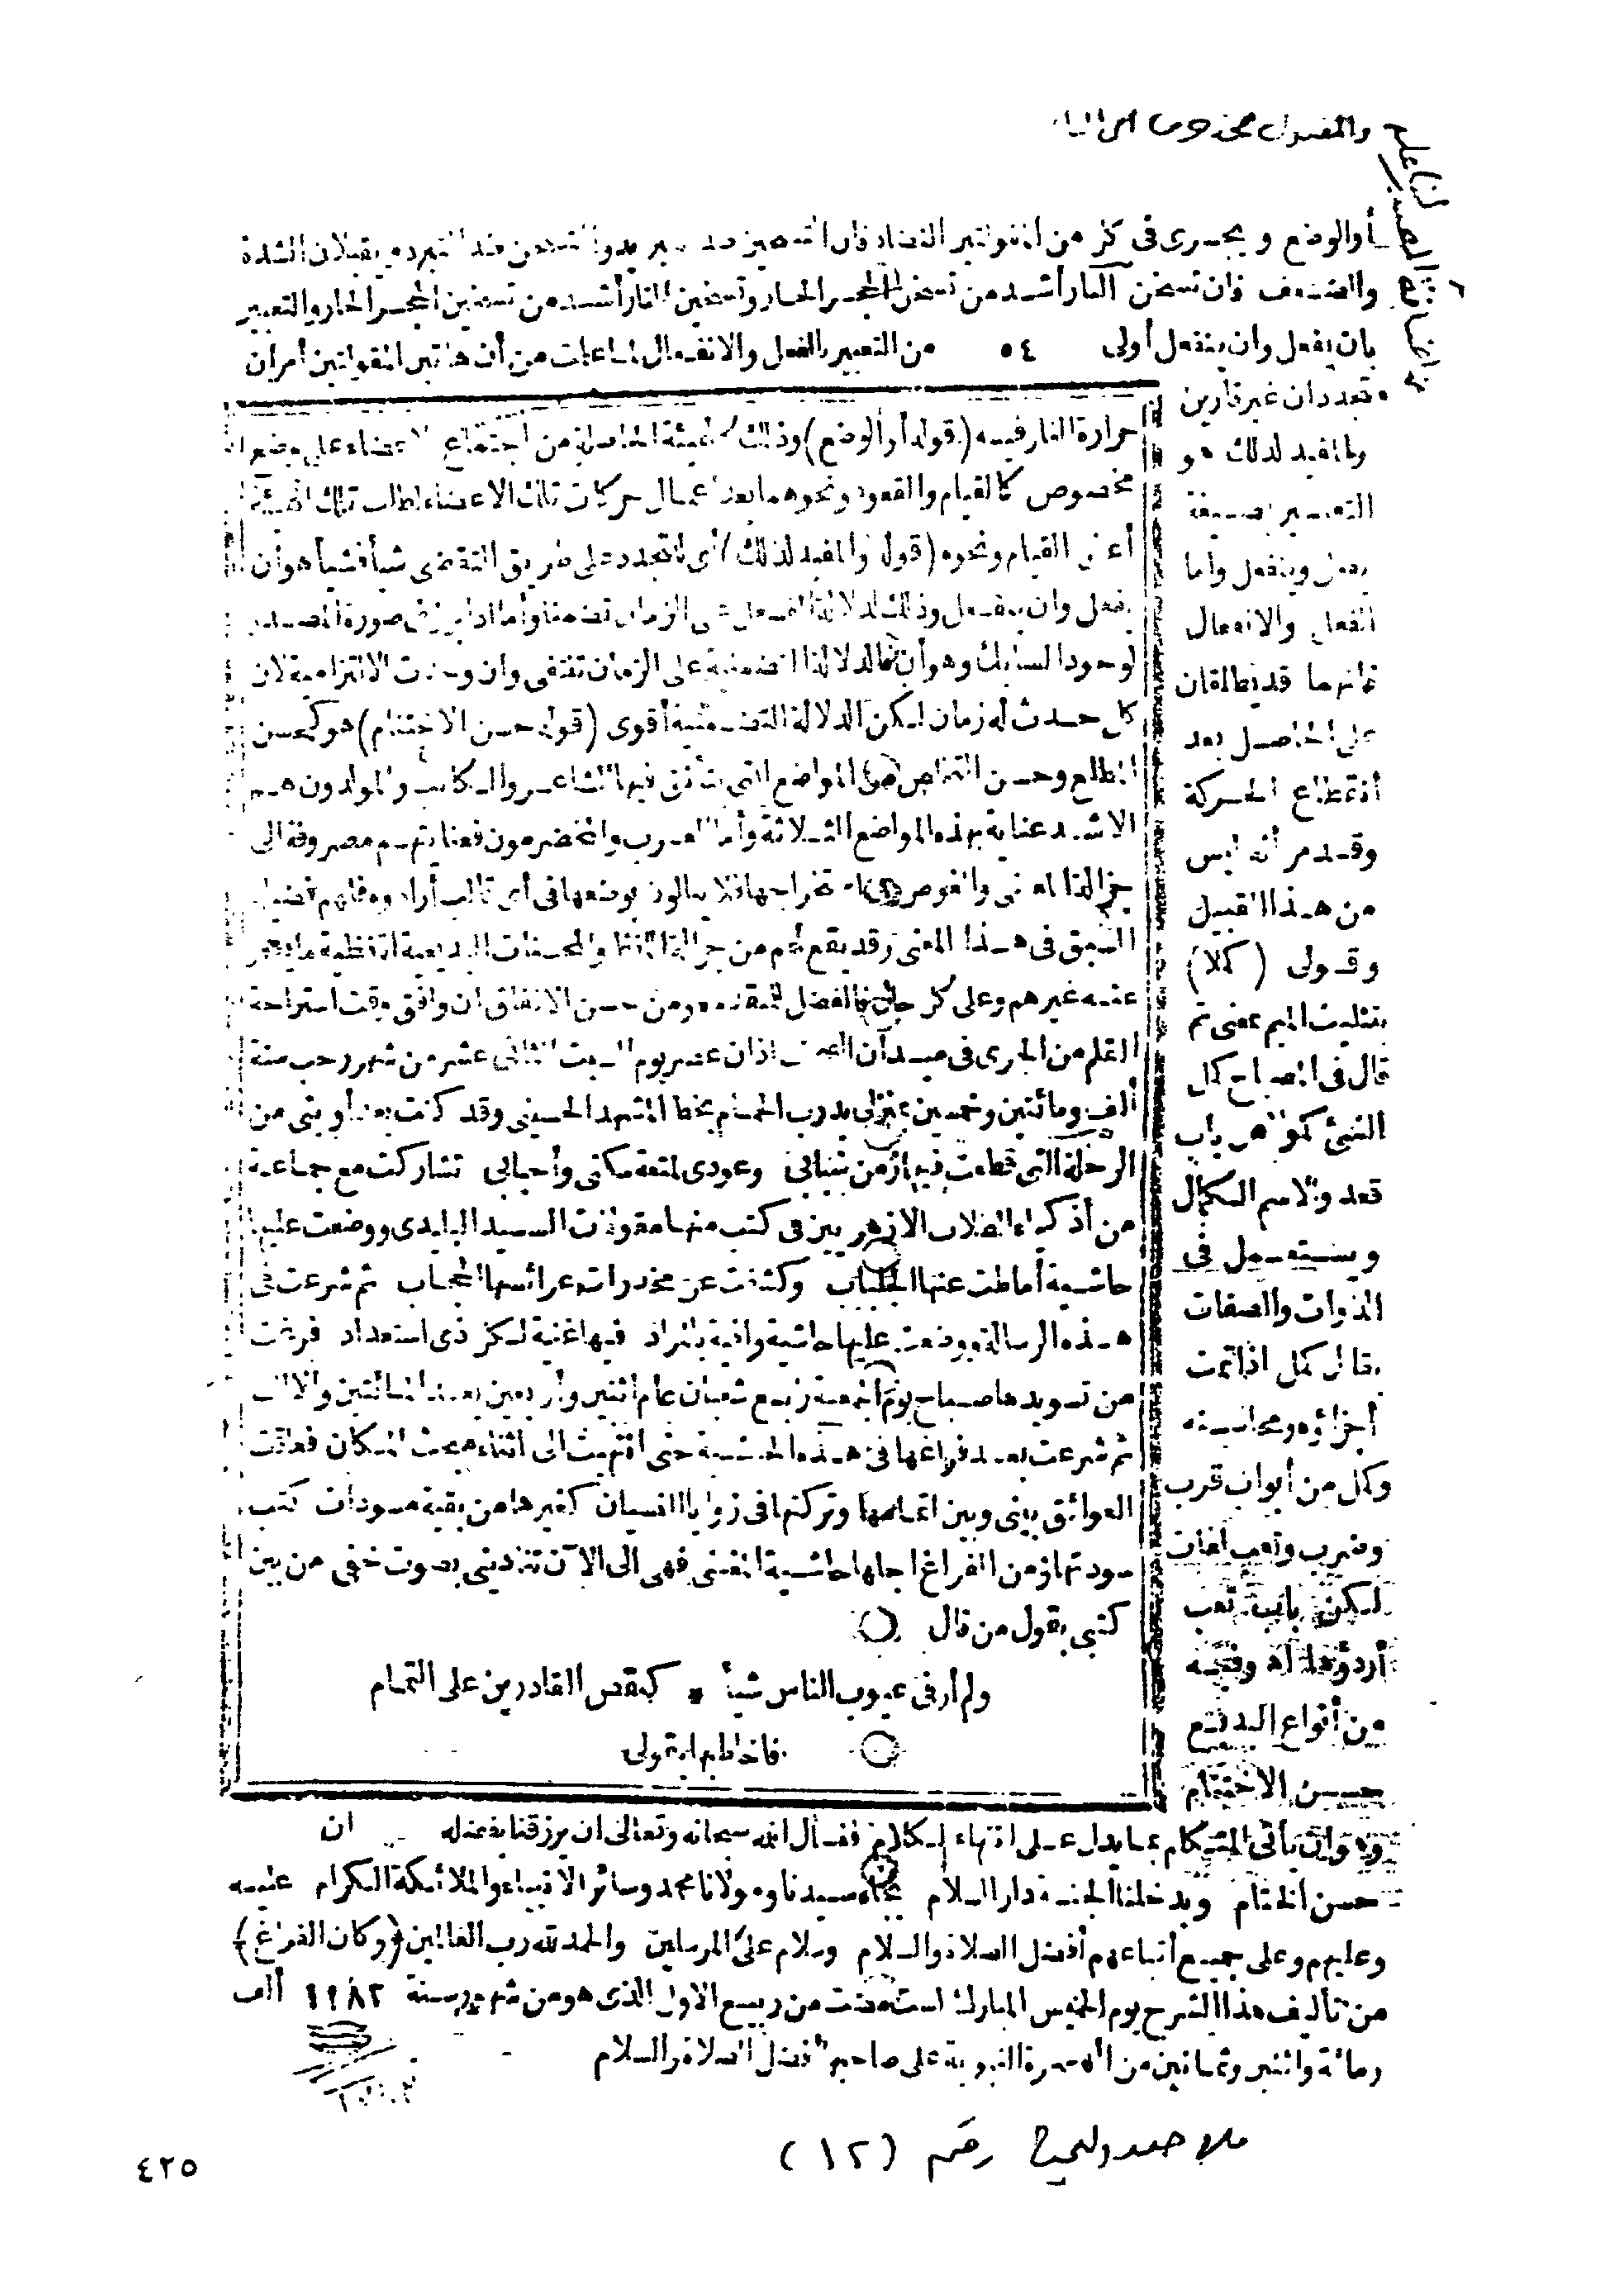 أوالوضع ويجرى فى كل من
والضعف فان تسخن النار أشد من تسخن الحجر الحار وتسخين النار أشد من تسخين الحجر الحار والتعبير
بان يفعل وان ينفعل أولى ٥٤ من التعبير بالفعل والانفعال لما علمت من أن هاتين المقولتين أمران
متجددان غير قارين
والمفيد لذلك هو
التعبير بصيغة
يفعل وينفعل وأما
الفعل والانفعال
فانهما قد يطلقان
على الحاصل بعد
انقطاع الحركة
وقد مر أنه ليس
من هذا القبيل
وقولى (كملا)
بتثليث الميم بمعنى تم
قال فى المصباح كمل
الشئ كمولا من باب
قعد والاسم الكمال
ويستعمل فى
الذوات والصفات
يقال كمل اذا تمت
أجزاؤه ومحاسنه
وكمل من أبواب قرب
وضرب وتعب لغات
لكن باب تعب
أردؤها اه وفيه
من أنواع البديع
حسن الاختتام
وهو ان يأتى المتكلم بما يدل على انتهاء الكلام فنسأل الله سبحانه وتعالى ان يرزقنا بفضله
حسن الختام ويدخلنا الجنة دار السلام بجاه سيدنا ومولانا محمد وسائر الانبياء والملائكة الكرام عليه
وعليهم وعلى جميع أتباعهم أفضل الصلاة والسلام وسلام على المرسلين والحمد لله رب العالمين (وكان الفراغ)
من تأليف هذا الشرح يوم الخميس المبارك لست مضت من ربيع الاول الذى هو من شهور سنة ١١٨٢ ألف
ومائة واثنين وثمانين من الهجرة النبوية على صاحبها أفضل الصلاة والسلام
حرارة النار فيه (قوله أو الوضع) وذلك كالهيئة الحاصلة من اجتماع الاعضاء على وضع
مخصوص كالقيام والقعود ونحوهما بعد اعمال حركات تلك الاعضاء لطلب تلك الهيئة
أعنى القيام ونحوه (قوله والمفيد لذلك) أى للتجدد على طريق التقضى شيأ فشيأ هو أن
يفعل وان ينفعل وذلك لدلالة الفعل على الزمان تضمنا وأما اذا برز فى صورة المصدر
لوجود السابك وهو أن فالدلالة التضمنية على الزمان تنتفى وان وجدت الالتزامية لان
كل حدث له زمان لكن الدلالة التضمنية أقوى (قوله حسن الاختتام) هو كحسن
المطلع وحسن التخلص من المواضع التى يتأنق فيها الشاعر والكاتب والمولدون هم
الاشد عناية بهذه المواضع الثلاثة وأما العرب والمخضرمون فعنايتهم مصروفة الى
جزالة المعنى والغوص على استخراجها فلا يبالون بوضعها فى أى قالب أرادوه فلهم فضيلة
السبق فى هذا المعنى وقد يقع لهم من جزالة اللفظ والمحسنات البديعية اللفظية ما يعجز
عنه غيرهم وعلى كل حال فالفضل للمتقدم ومن حسن الاتفاق ان وافق وقت استراحة
القلم من الجرى فى ميدان اذان عصر يوم السبت الثانى عشر من شهر رجب سنة
ألف ومائتين وخمسين بمنزلى بدرب الحمام بخط المشهد الحسينى وقد كنت بعد أوبتى من
الرحلة التى قطعت فيها زمن شبابى وعودى لمتعة سكنى وأحبابى تشاركت مع جماعة
من أذكياء الطلاب الازهريين فى كتب منها مقولات السيد البليدى ووضعت عليها
حاشية أماطت عنها الجلباب وكشفت عن مخدرات عرائسها الحجاب ثم شرعت فى
هذه الرسالة ووضعت عليها حاشية وافية بالمراد فيها غنية لكل ذى استعداد فرغت
من تسويدها صباح يوم الجمعة رابع شعبان عام اثنين وأربعين بعد المائتين والالف
ثم شرعت بعد فراغها فى هذه الحاشية حتى انتهيت الى أثناء مبحث المكان فعاقت
العوائق بينى وبين اتمامها وتركتها فى زوايا النسيان كغيرها من بقية مسودات كتب
سودتها ومن الفراغ اجلها حاشية المغنى فهى الى الآن تنادينى بصوت خفى من بين
كتبى بقول من قال
ولم أر فى عيوب الناس شيأ * كنقص القادرين على التمام
فاخاطبها بقولى
رقم (١٢)
٤٢٥